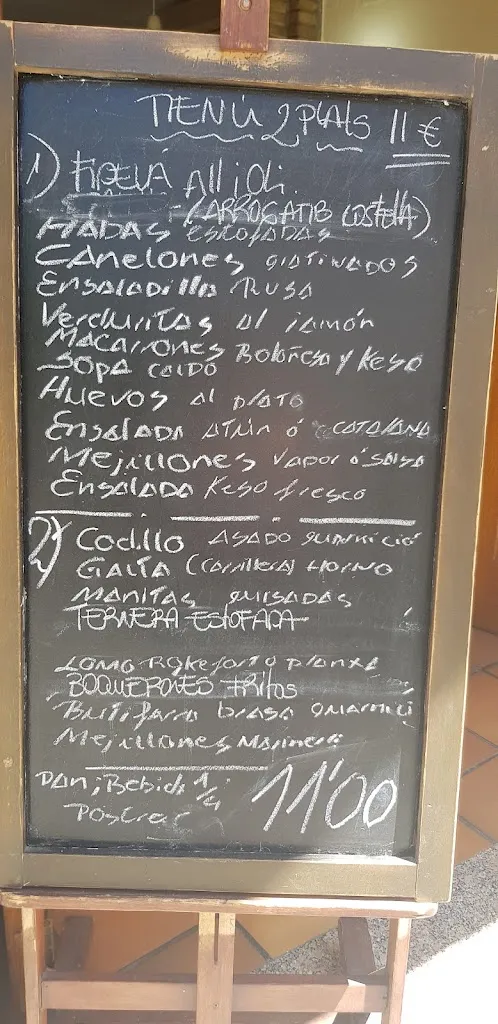 MENÚ 2 Plats 11 €
1) FIDEUÁ Allioli
(ARROS CATIB COSTELLA)
HABAS ESCOFADAS
Canelones GRATINADOS
Ensaladilla RUSA
Verduritas al jamón
Macarrones Boloñesa y Keso
Sopa CALDO
Huevos al plato
Ensalada ATÚN ó CATALANA
Mejillones Vapor ó SALSA
Ensalada Keso fresco
2) Codillo ASADO guarnició
GALTA (Carrillera) HORNO
MANITAS guisadas
TERNERA ESTOFADA
LOMO Rokefort y planxa
BOQUERONES fritos
Butifarra brasa guarnici
Mejillones Marinera
Pan; Bebida 1/4;
Postre
11'00